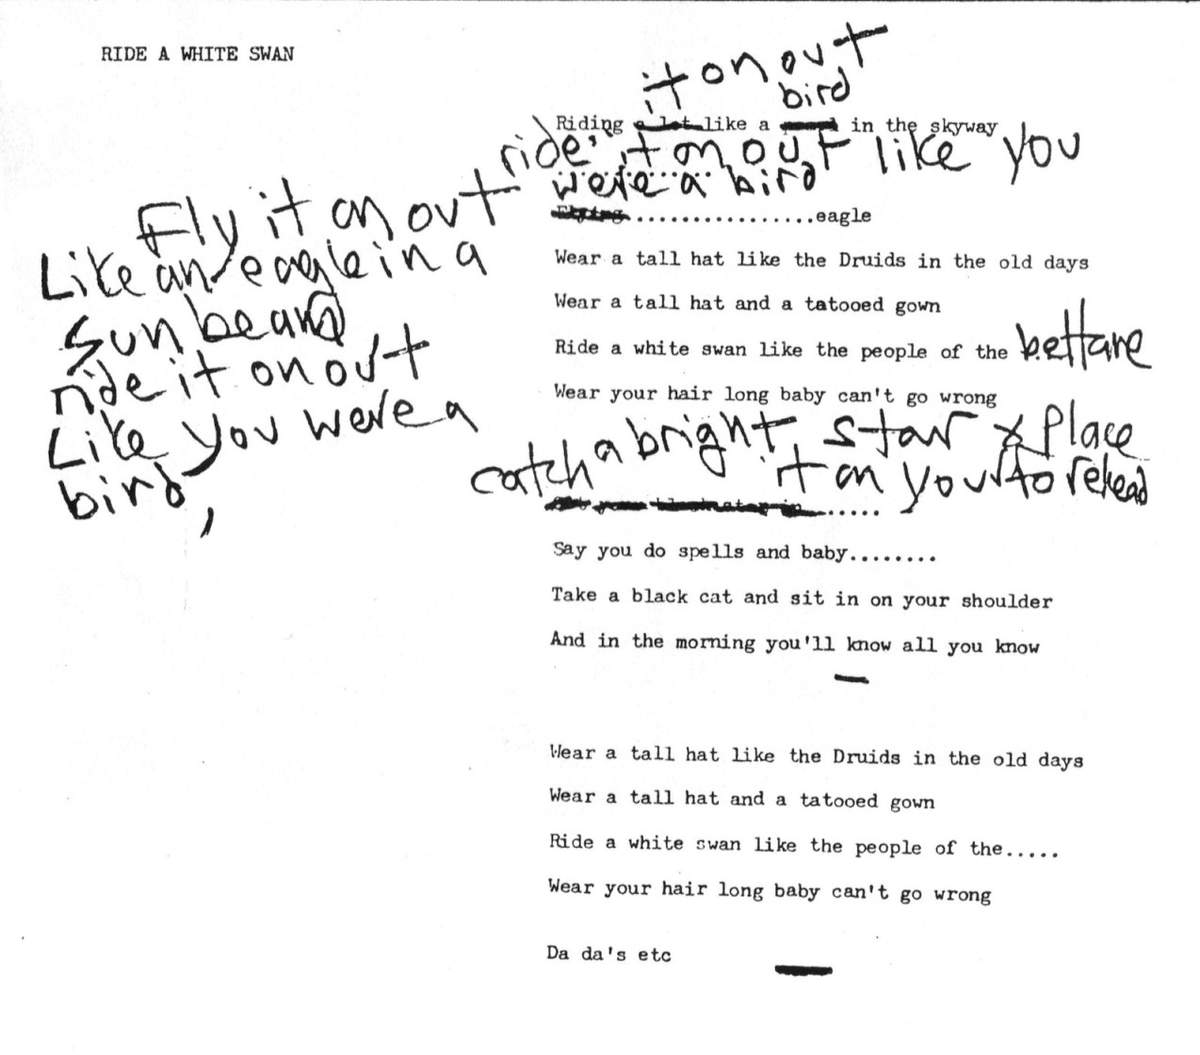 RIDE A WHITE SWAN
it on out
bird
Riding a lot like a in the skyway
ride it on out like you
were a bird
Fly it on out
Like an eagle in a
sun beam
ride it on out
Like you were a
bird,
Flying ................eagle
Wear a tall hat like the Druids in the old days
Wear a tall hat and a tatooed gown
Ride a white swan like the people of the beltane
Wear your hair long baby can't go wrong
catch a bright star & Place
it on your forehead
......
Say you do spells and baby........
Take a black cat and sit in on your shoulder
And in the morning you'll know all you know
Wear a tall hat like the Druids in the old days
Wear a tall hat and a tatooed gown
Ride a white swan like the people of the.....
Wear your hair long baby can't go wrong
Da da's etc